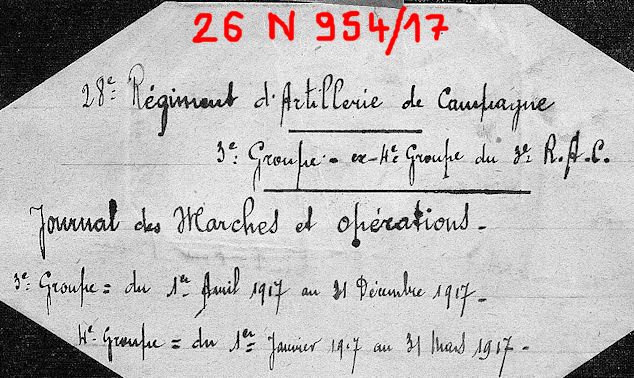 26 N 954/17
28e Régiment d'Artillerie de Campagne
3e Groupe - ex-4e Groupe du 3e R.A.C.
Journal des Marches et opérations -
3e Groupe = du 1er Avril 1917 au 31 Décembre 1917 -
4e Groupe = du 1er Janvier 1917 au 31 Mars 1917 -